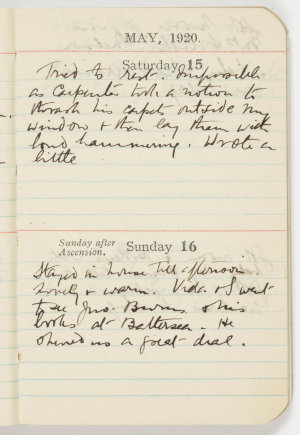 MAY, 1920.
Saturday 15
Tried to rest. Impossible
as Carpenter took a notion to
thrash his carpets outside my
window & then lay them with
loud hammering. Wrote a
little
Sunday after
Ascension.
Sunday 16
Stayed in house till afternoon
Lovely & warm. Vida & I went
to see Jno. Burns & his
books at Battersea. He
showed us a great deal.